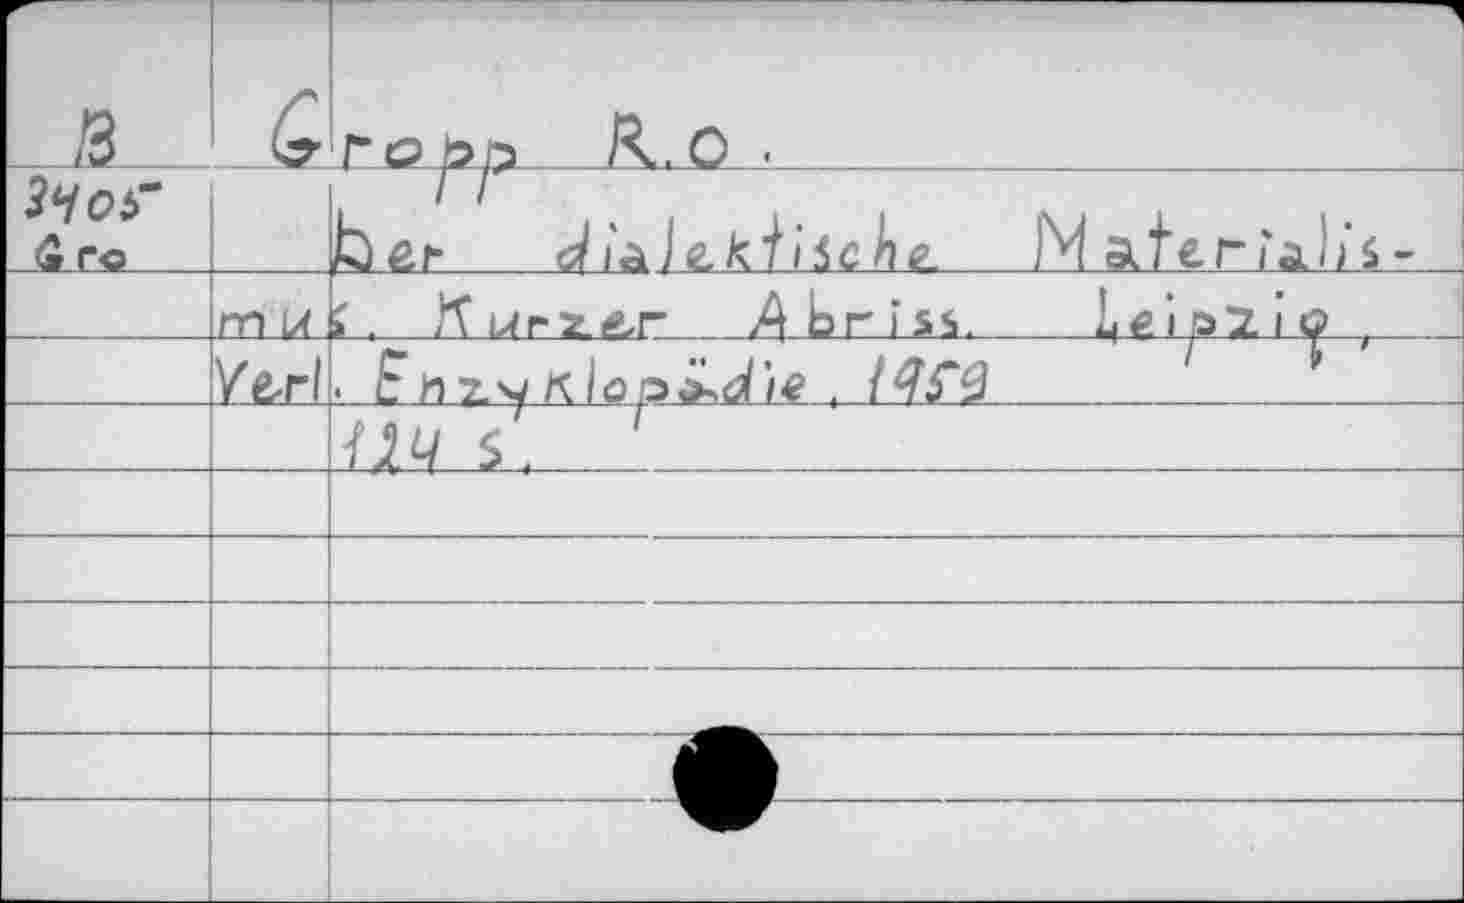 B Gropp R.O.
3405
Gro Der dialektische Materialis-
mus. Kurzer Abriss. Leipzig,
Verl. Enzyklopädie, 1959
124 S.